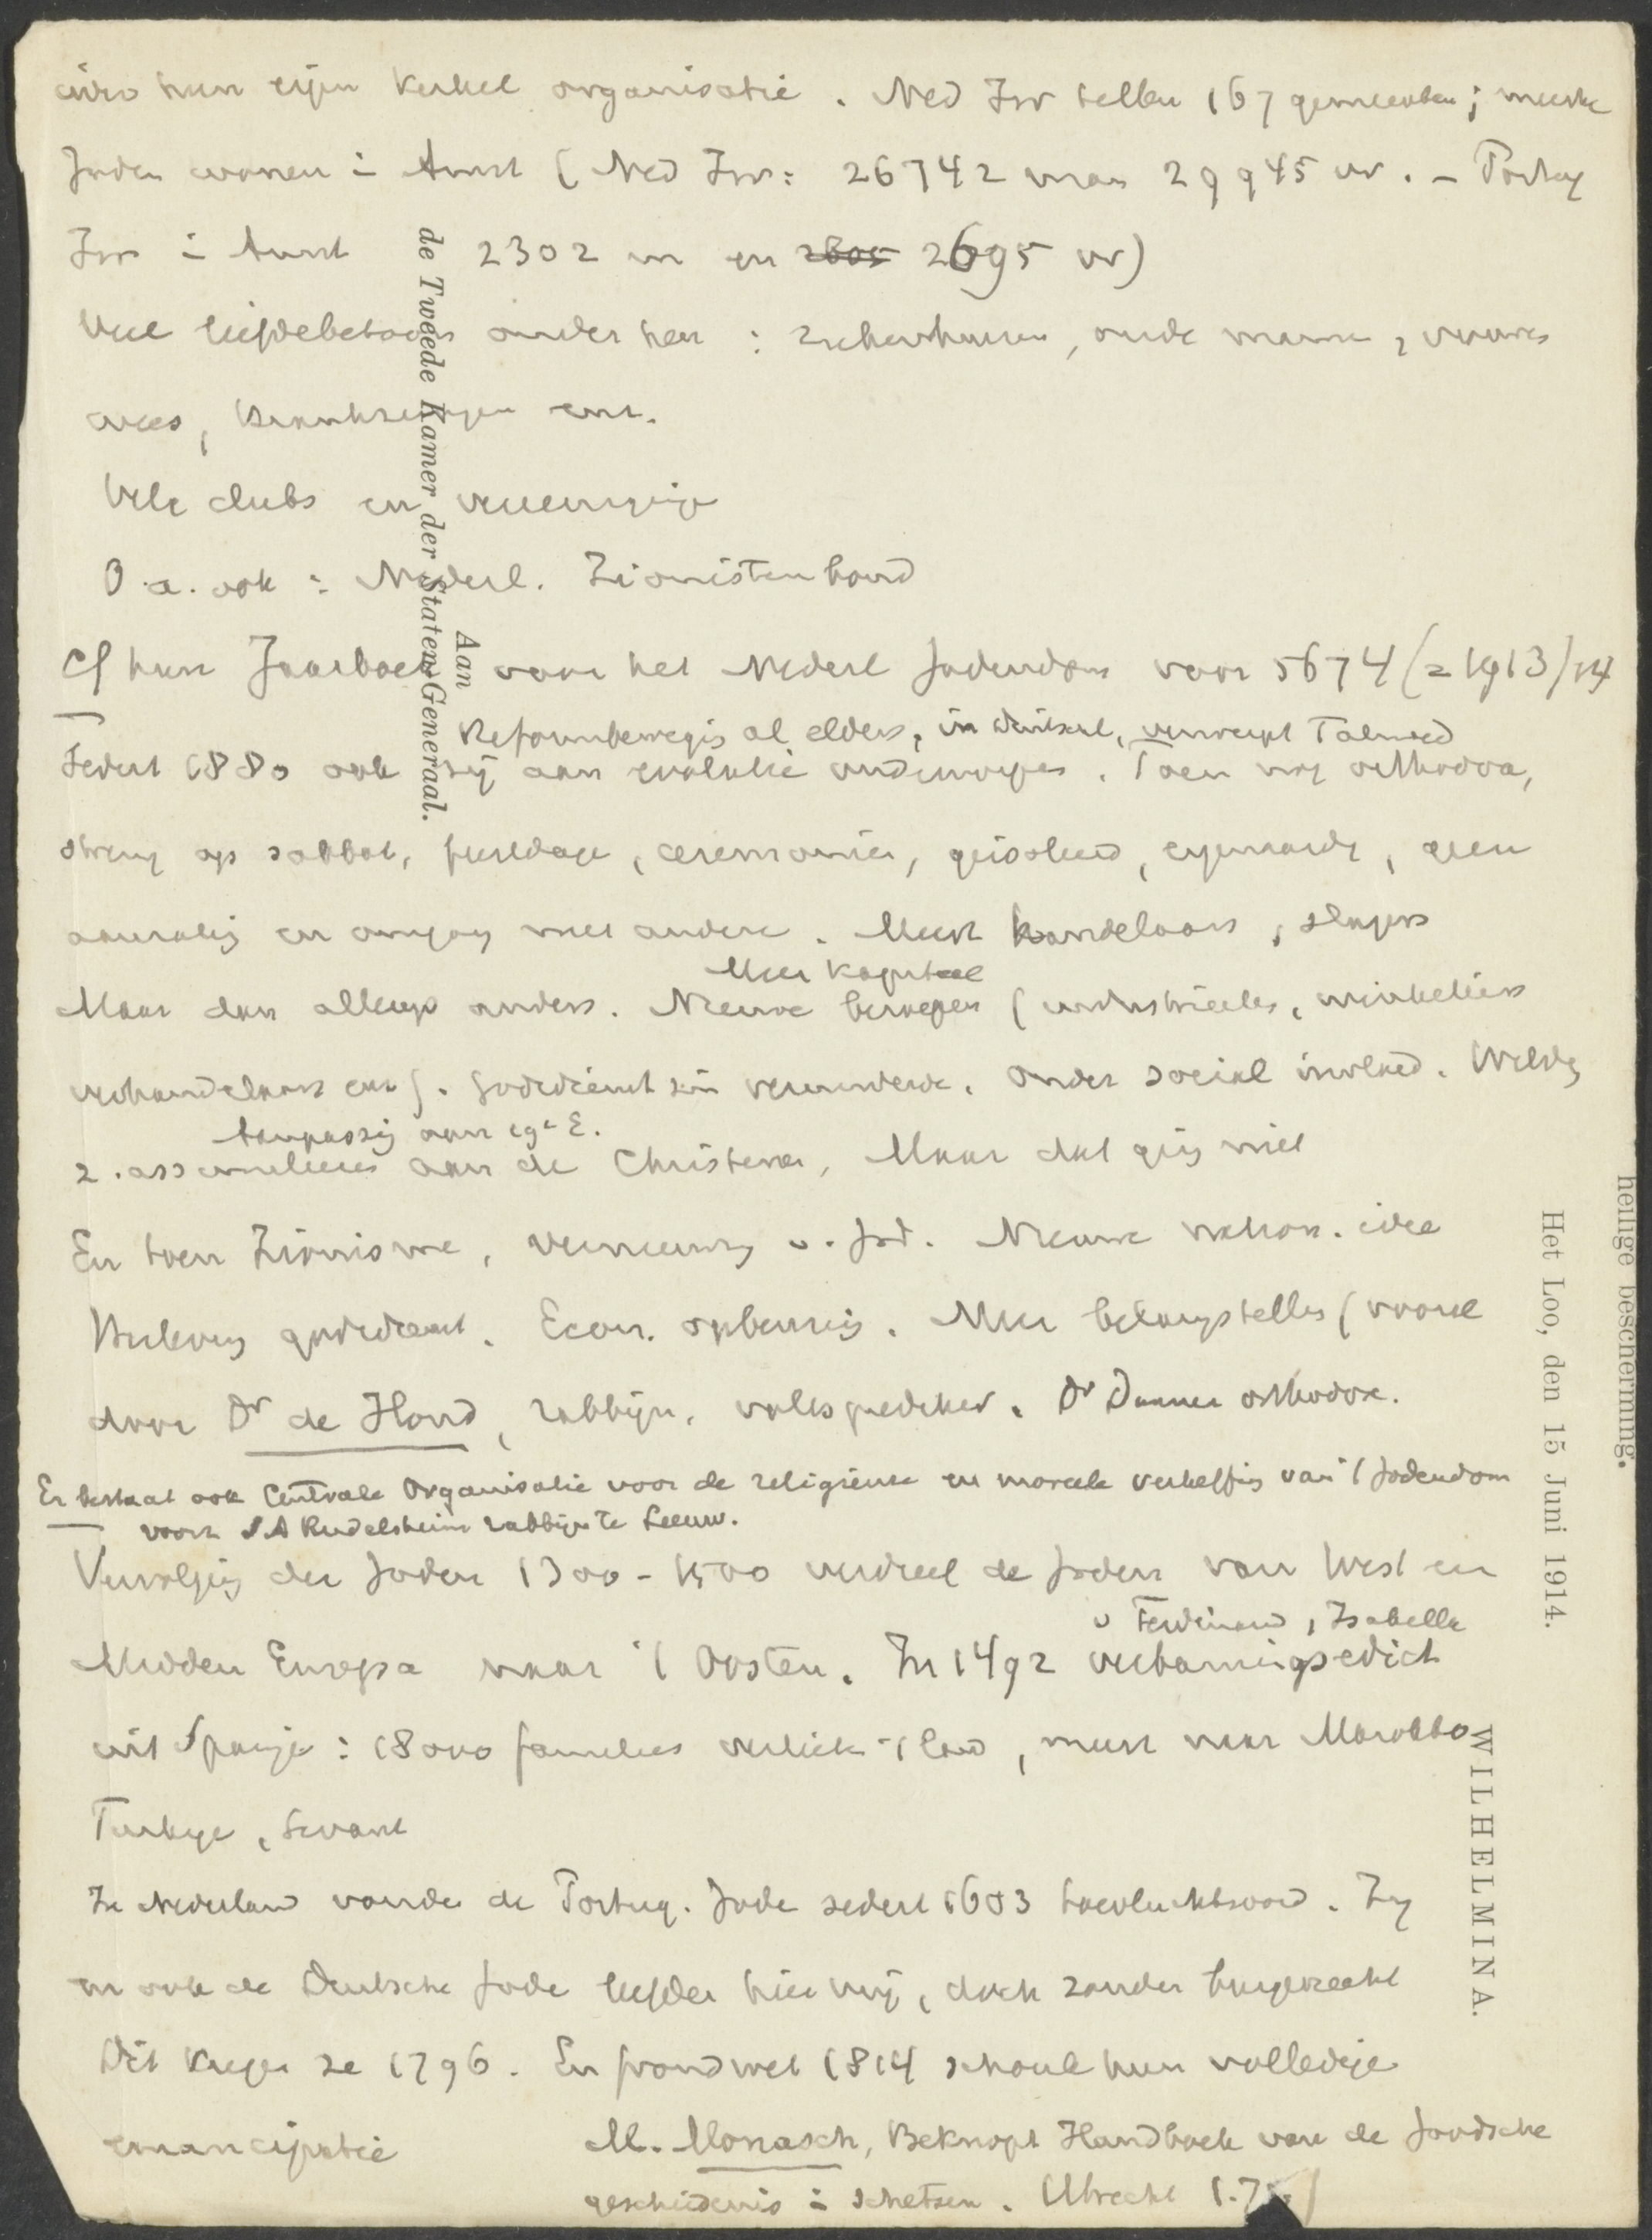 hun eigen kerkel organisatie. Ned Isr tellen 167 gemeenten; meeste
Joden wonen in Amst (Ned Isr: 26742 man 29945 vr. - Portug
Isr in Amst 2302 m en 2695 vr)
Veel liefdebetoon onder hen: ziekenhuizen, oude mannen, vrouwen
wees, krankzinnigen enz.
Vele clubs en vereenigingen
O.a. ook: Nederl. Zionistenbond
Cf hun Jaarboek voor het Nederl Jodendom voor 5674 (= 1913/14
Reformbewegis al elders, in Duitschl, verwerpt Talmud
Sedert 1880 ook zij aan evolutie onderworpen. Toen nog orthodox,
streng op sabbat, feestdage, ceremoniën, geisoleerd, eigenaardig, geen
aanraking en omgang met andere. Meest handelaars, slagers
Meer kapitaal
Maar dan allengs anders. Nieuwe beroepen (industrieelen, winkeliers
enz). Godsdienst zin verminderde. Onder social invloed.
Aanpassing aan 19e E.
assimileeren aan de Christenen, Maar dat ging niet
En toen Zionisme, vernieuwing v. Jod. Nieuwe nation. idee
godsdienst. Econ. opbeuring. Meer belangstelling (vooral
door Dr de Hond, rabbijn, volksprediker. Dr Dunner orthodox.
Er bestaat ook Centrale Organisatie voor de religieuse en moreele verheffing van 't Jodendom
voorz S A Rudelsheim rabbijn te Leeuw.
Vervolging der Joden 1300-1500 verdreef de Joden van West en
v Ferdinand, Isabella
Midden Europa naar 't Oosten. In 1492 verbanningsedict
uit Spanje: 18000 families verliet 't land, meest naar Marokko
Turkye, Levant
In Nederland vonden de Portug. Jode sedert 1603 toevluchtsoord. Zy
en ook de Duitsche Jode leefden hier vrij, doch zonder burgerrecht
Dit kregen ze 1796. En grondwet 1814 schonk hun volledige
emancipatie
M. Monasch, Beknopt Handboek van de Joodsche
geschiedenis in schetsen. Utrecht
Aan
de Tweede Kamer der Staten-Generaal.
heilige bescherming.
Het Loo, den 15 Juni 1914.
WILHELMINA.